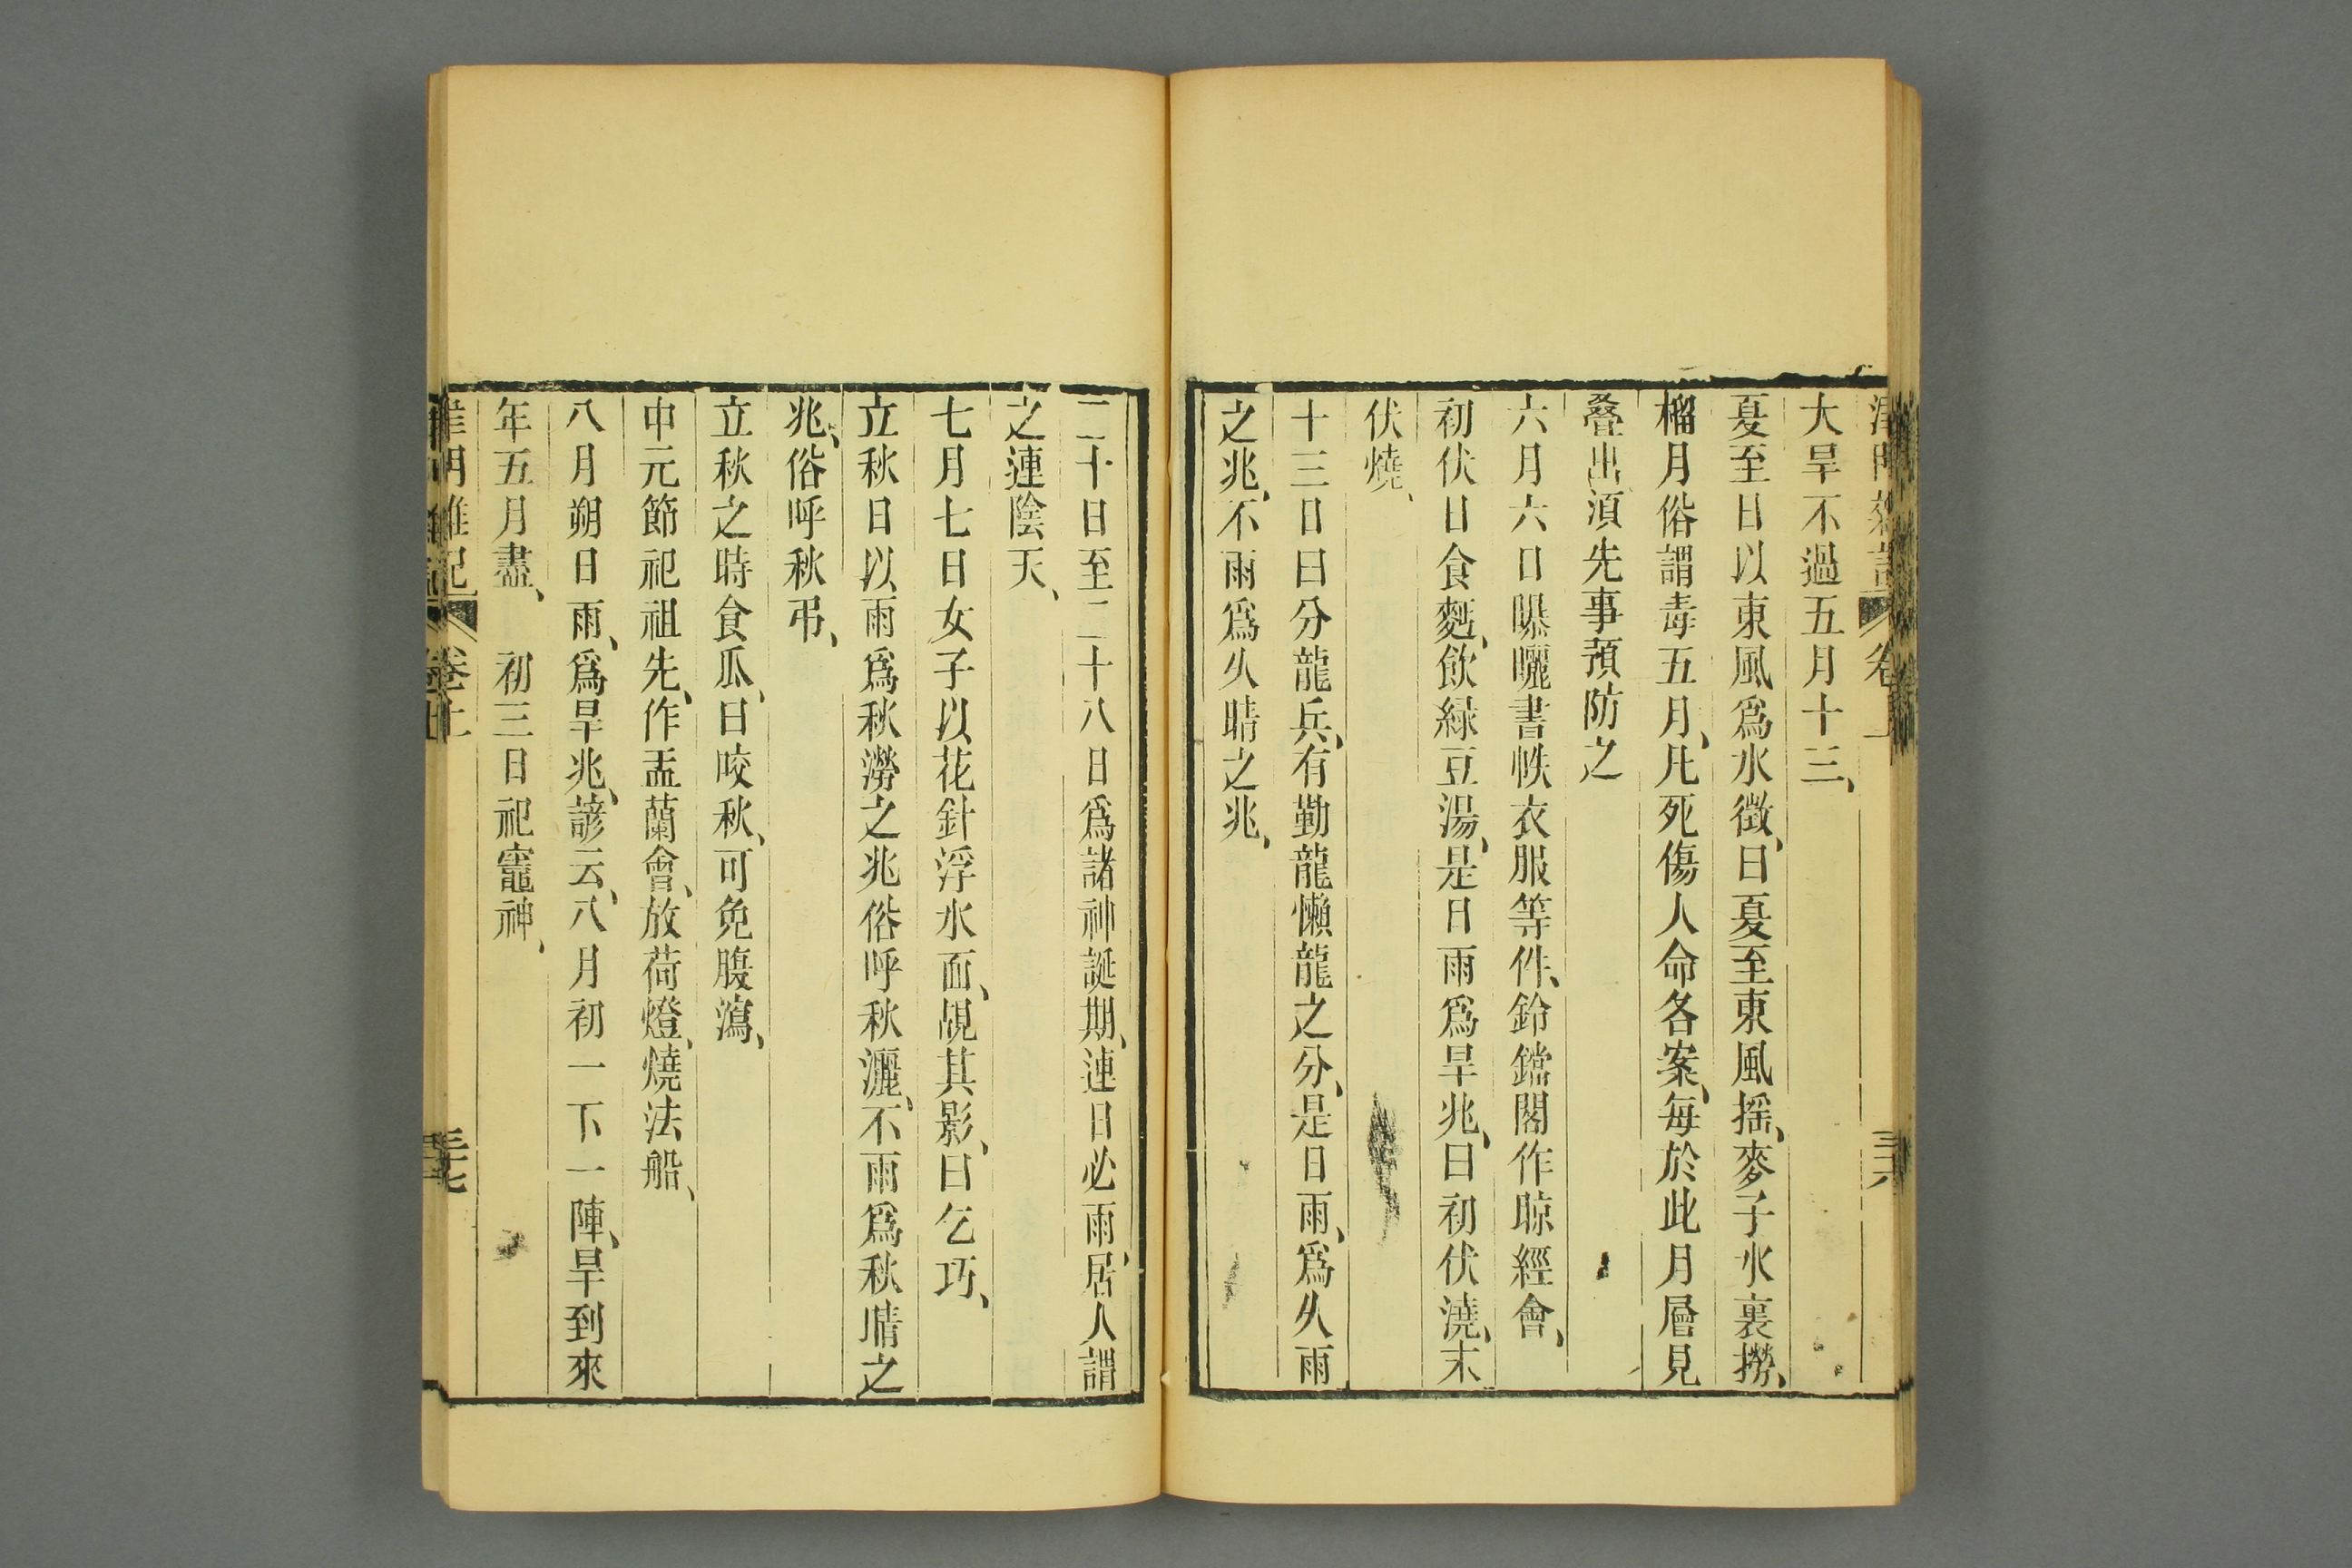 大旱不過五月十三、
夏至日以東風爲水徵、曰夏至東風搖、麥子水裏撈、
榴月俗謂毒五月、凡死傷人命各案、每於此月層見
叠出須先事預防之
六月六日曝曬書帙衣服等件、鈴鐺閣作晾經會、
初伏日食麪、飲綠豆湯、是日雨爲旱兆、曰初伏澆、末
伏燒、
十三日曰分龍兵、有勤龍懶龍之分、是日雨、爲久雨
之兆、不雨爲久晴之兆、
二十日至二十八日爲諸神誕期、連日必雨、居人謂
之連陰天、
七月七日女子以花針浮水面、覘其影、曰乞巧、
立秋日以雨爲秋澇之兆俗呼秋灑、不雨爲秋晴之
兆、俗呼秋弔、
立秋之時食瓜、曰咬秋、可免腹瀉、
中元節祀祖先、作盂蘭會、放荷燈、燒法船、
八月朔日雨、爲旱兆、諺云、八月初一下一陣、旱到來
年五月盡、　初三日祀竈神、
卷上
三七